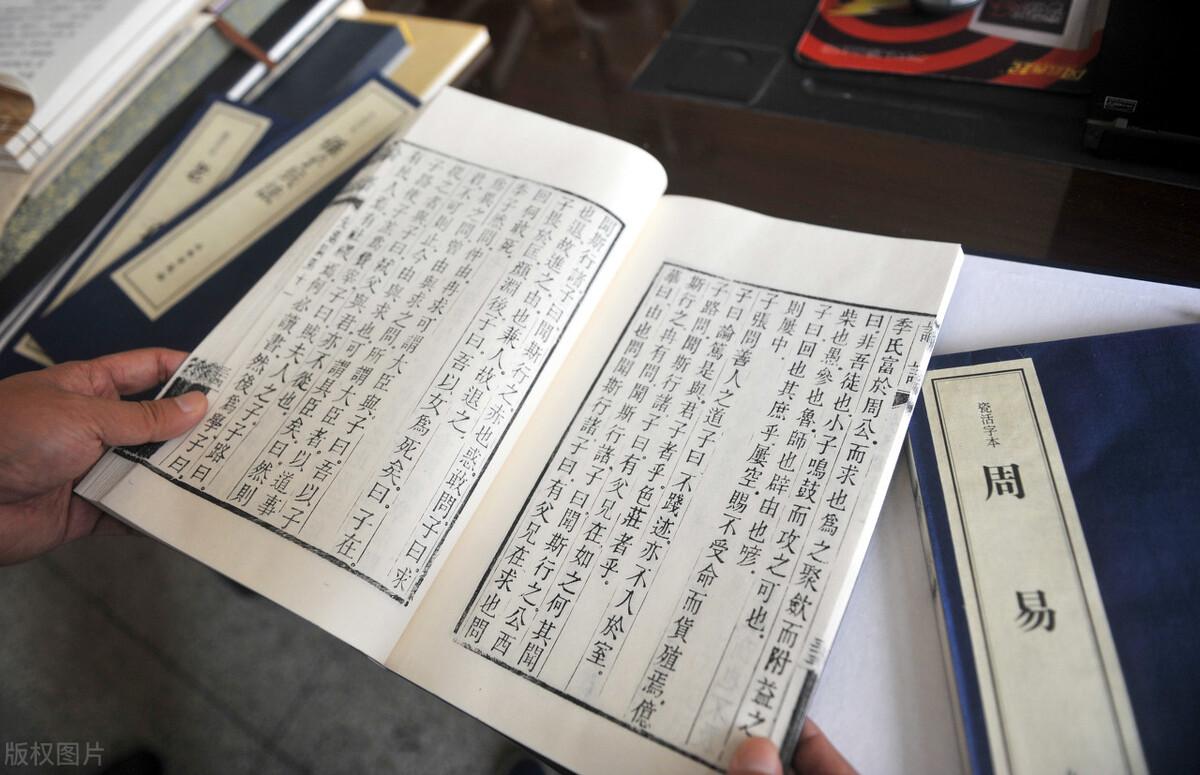 季氏富於周公。而求也爲之聚斂而附益之
曰。非吾徒也。小子鳴鼓而攻之可也。
柴也愚。參也魯。師也辟。由也喭。
子曰。回也其庶乎。屢空。賜不受命而貨殖焉。億
則屢中。
子張問善人之道。子曰。不踐迹。亦不入於室。
子曰。論篤是與。君子者乎。色莊者乎。
子路問聞斯行諸。子曰。有父兄在。如之何其聞
斯行之。冉有問聞斯行諸。子曰。聞斯行之。公西
華曰。由也問聞斯行諸。子曰。有父兄在。求也問
聞斯行諸。子曰。聞斯行之。赤也惑。敢問。子曰。求
也退。故進之。由也兼人。故退之。
子畏於匡。顏淵後。子曰。吾以女爲死矣。曰。子在。
回何敢死。
季子然問。仲由冉求可謂大臣與。子曰。吾以子
爲異之問。曾由與求之問。所謂大臣者。以道事
君。不可則止。今由與求也。可謂具臣矣。曰。然則
從之者與。子曰。弒父與君。亦不從也。
子路使子羔爲費宰。子曰。賊夫人之子。子路曰。
有民人焉。有社稷焉。何必讀書。然後爲學。子曰。
瓷活字本
周易
版权图片